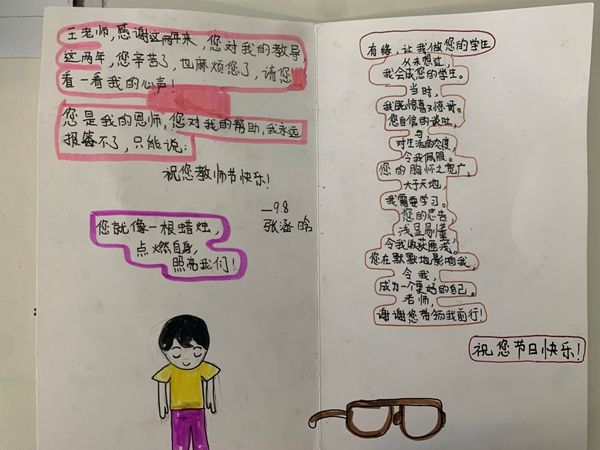 王老师，感谢这两年来，您对我的教导
这两年，您辛苦了，也麻烦您了，请您
看一看我的心声！
您是我的恩师，您对我的帮助，我永远
报答不了，只能说：
祝您教师节快乐！
—9.8
张涵晗
您就像一根蜡烛，
点燃自身，
照亮我们！
有缘，让我做您的学生
从未想过，
我会成您的学生。
当时，
我既惊喜又惊讶。
您自信的谈吐，
与
对生活的态度
令我佩服。
您的胸怀之宽广，
大于天地，
我需要学习。
您的忠告
浅显易懂
令我收获匪浅。
您在默默地影响我，
令我，
成为一个更好的自己。
老师，
谢谢您带领我前行！
祝您节日快乐！